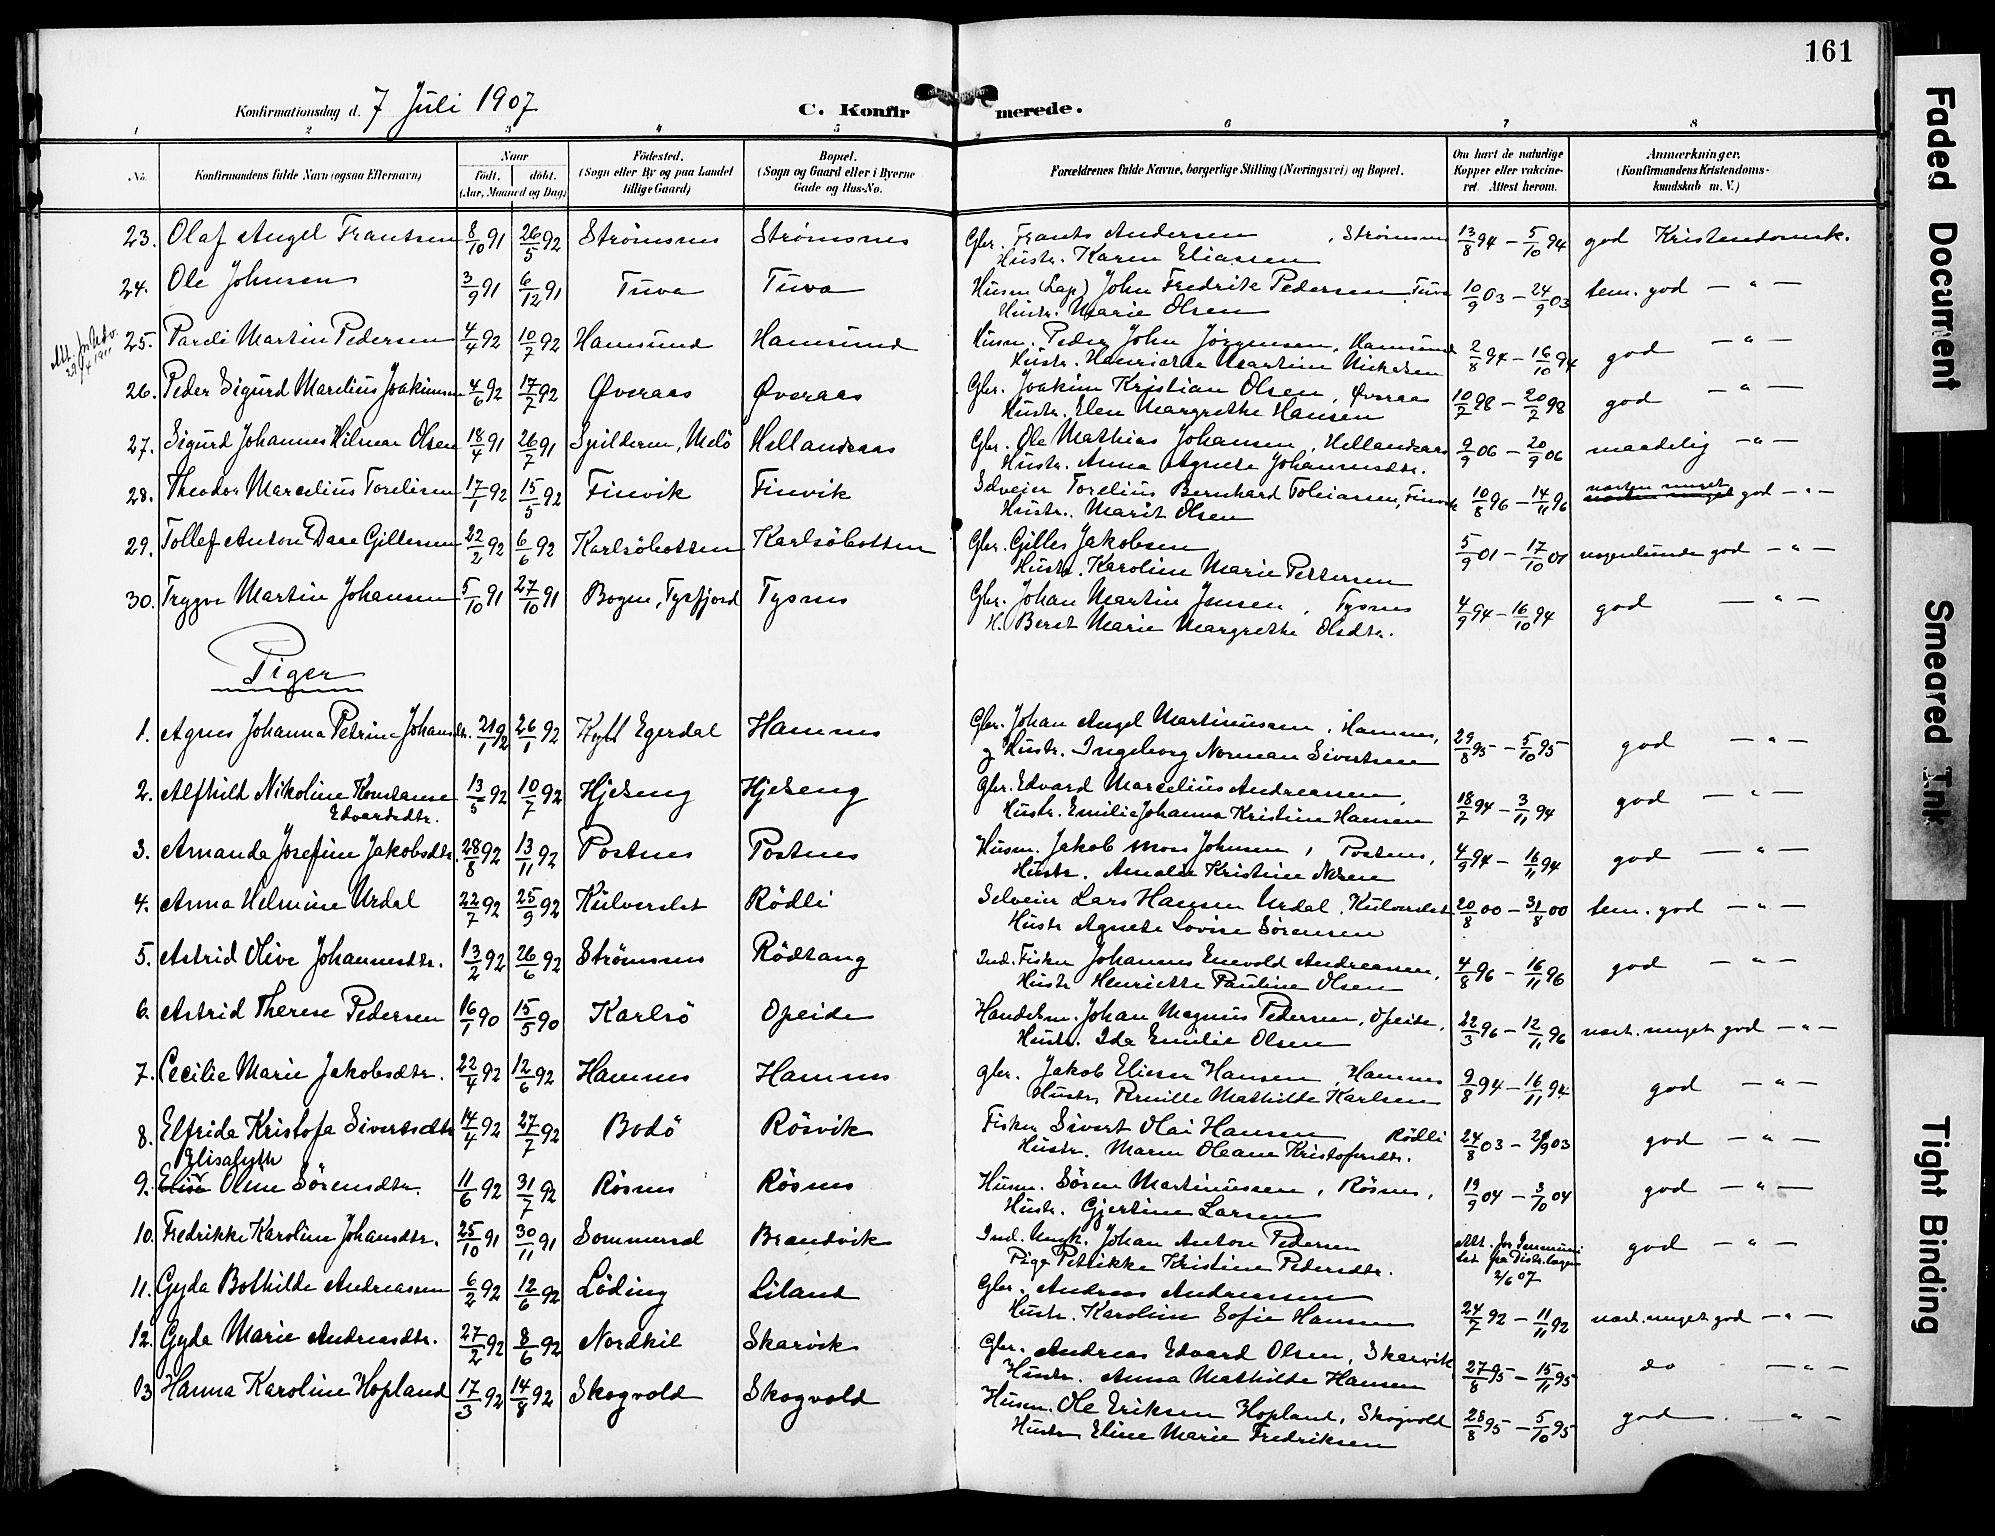 161
Konfirmationsdag d. 7 Juli 1907
C. Konfirmerede.
1 2 3 4 5 6 7 8
No.
Konfirmandens fulde Navn (ogsaa Efternavn)
Naar
födt. döbt.
(Aar, Maaned og Dag)
Födested.
(Sogn eller By og paa Landet
tillige Gaard)
Bopæl.
(Sogn og Gaard eller i Byerne
Gade og Hus-No.
Forældrenes fulde Navne, borgerlige Stilling (Næringsvei) og Bopæl.
Om havt de naturlige
Kopper eller vakcine-
ret. Attest herom.
Anmærkninger.
(Konfirmandens Kristendoms-
kundskab m. V.)
23. Olaf Angel Frantsen 8/10 91 26/5 92 Strømsnes Strømsnes Gbr. Frants Andersen, Strømsnes 13/8 94 – 5/10 94 god Kristendomsk.
Hustr. Karen Eliassen
24. Ole Johnsen 3/9 91 6/12 91 Tuva Tuva Husm (Lap) John Fredrik Pedersen, Tuva 10/9 03 – 24/9 03 tem. god – " –
Hustr. Marie Olsen
Att.
25. Pareli Martin Pedersen 4/4 92 10/7 92 Hamsund Hamsund Husm. Peder John Jørgensen, Hamsund 2/8 94 – 16/10 94 god – " –
Hustr. Henriette Martine Mikelsen
26. Peder Sigurd Marelius Joakimsen 4/6 92 17/7 92 Øveraas Øveraas Gbr. Joakim Kristian Olsen, Øveraas 10/2 98 – 20/2 98 god – " –
Hustr. Elen Margrethe Hansen
27. Sigurd Johannes Hilmar Olsen 18/4 91 26/7 91 Spilderen, Melö Hellandsaas Gbr. Ole Mathias Johansen, Hellandsaas 9/9 06 – 20/9 06 maadelig – " –
Hustr. Anna Agnete Johannesdtr.
28. Theodor Marcelius Torelisen 17/1 92 15/5 92 Finvik Finvik Selveier Torelius Bernhard Toleiasen, Finvik 10/8 96 – 14/11 96 næsten meget god – " –
Hustr. Marit Olsen
29. Tollef Anton Daae Gillesen 22/2 92 6/6 92 Karlsöbotten Karlsöbotten Gbr. Gilles Jakobsen 5/9 01 – 17/10 01 nogenlunde god – " –
Hustr. Karoline Marie Pettersen
30. Trygve Martin Johansen 5/10 91 27/10 91 Bogen, Tysfjord Tysnes Gbr. Johan Martin Jensen, Tysnes 4/9 94 – 16/10 94 god – " –
H. Beret Marie Margrethe Olsdtr.
Piger
1. Agnes Johanna Petrine Johansdtr. 21/1 92 26/1 92 Egerdal Hamnes Gbr. Johan Angel Martinussen, Hamnes, 29/8 95 – 5/10 95 god – " –
og Hustr. Ingeborg Norman Sivertsen
2. Alfhild Nikoline Konstanse 13/5 92 10/7 92 Hjeseng Hjeseng Gbr. Edvard Marselius Andreassen, 18/2 94 – 3/11 94 god – " –
Edvardsdtr. Hustr. Emilie Johanna Kristine Hansen
3. Amanda Josefine Jakobsdtr. 28/8 92 13/11 92 Postnes Postnes Husm. Jakob Moss Johnsen, Postnes, 4/9 94 – 16/11 94 god – " –
Hustr. Amalie Kristine Nilsen
4. Anna Helmine Urdal 22/7 92 25/9 92 Kulverslet Rödli Selveier Lars Hansen Urdal, Kulverslet 20/8 00 – 31/8 00 tem. god – " –
Hustr Agnete Lovise Sørensen
5. Astrid Olive Johannesdtr. 13/2 92 26/6 92 Strømsnes Rödtang Ind. Fisker Johannes Enevold Andreassen, 4/8 96 – 16/11 96 god – " –
Hustr Henriette Pauline Olsen
6. Astrid Therese Pedersen 16/1 90 15/5 90 Karlsö Opeide Handelsm. Johan Magnus Pedersen, Opeide, 22/3 96 – 12/11 96 næst. meget god – " –
Hustr. Ida Emilie Olsen
7. Cecilie Marie Jakobsdtr. 22/4 92 12/6 92 Hamnes Hamnes Gbr. Jakob Eliesen Hansen, Hamnes 9/8 94 – 16/11 94 god – " –
Hustr. Pernille Mathilde Karlsen
8. Elfrida Kristofa Sivertsdtr 14/4 92 27/7 92 Bodö Rösvik Fisker Sivert Olai Hansen Rödli 24/8 03 – 2/9 03 god – " –
Hustr. Maren Oleane Kristofersdtr.
Elisabeth
9. Elise Oline Sörensdtr. 11/6 92 31/7 92 Rösnes Rösnes Husm. Søren Martinussen, Rösnes, 19/9 04 – 3/10 04 god – " –
Hustr. Gjertine Larsen
10. Fredrikke Karoline Johansdtr. 25/10 91 30/11 91 Sommersel Brandvik Ind. Ungk. Johan Anton Pedersen Att. fra Distr.lægen 2/6 07 god – " –
Pige Petrikke Kristine Pedersdtr.
11. Gyda Bothilde Andreassen 6/2 92 12/6 92 Löding Liland Gbr. Andreas Andreassen 24/7 92 – 11/11 92 næst. meget god – " –
Hustr. Karoline Sofie Hansen
12. Gyda Marie Andreasdtr. 27/2 92 8/6 92 Nordkil Skarvik Gbr. Andreas Edvard Olsen, Skarvik 27/8 95 – 15/11 95 do – " –
Hustr. Anna Mathilde Hansen
13 Hanna Karoline Hopland 17/3 92 14/8 92 Skogvold Skogvold Husm. Ole Eriksen Hopland, Skogvold 28/8 95 – 5/10 95 god – " –
Hustr Eline Marie Fredriksen
Faded Document
Smeared Ink
Tight Binding